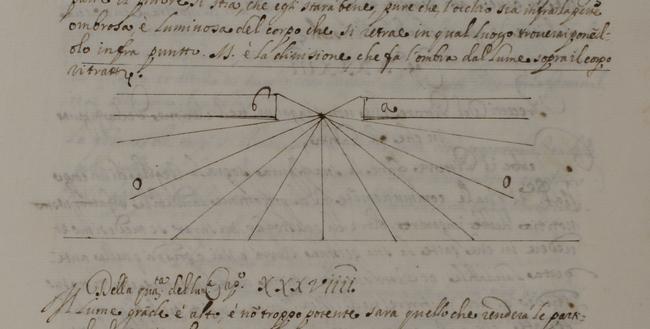 pure el pittore si stia, che egli stara bene, pure che l'ochio sia infra la parte
ombrosa è luminosa del corpo che si retrae in qual luogo troverai ponendolo
infra puntto. M. è la divisione che fa l'ombra dal lume sopra il corpo
ritratto.
b a
o o
Della qua.ta del lume Cap.o XXXVIIII.
Il lume grade è alto è nō troppo potente sara quello che rendera le part-